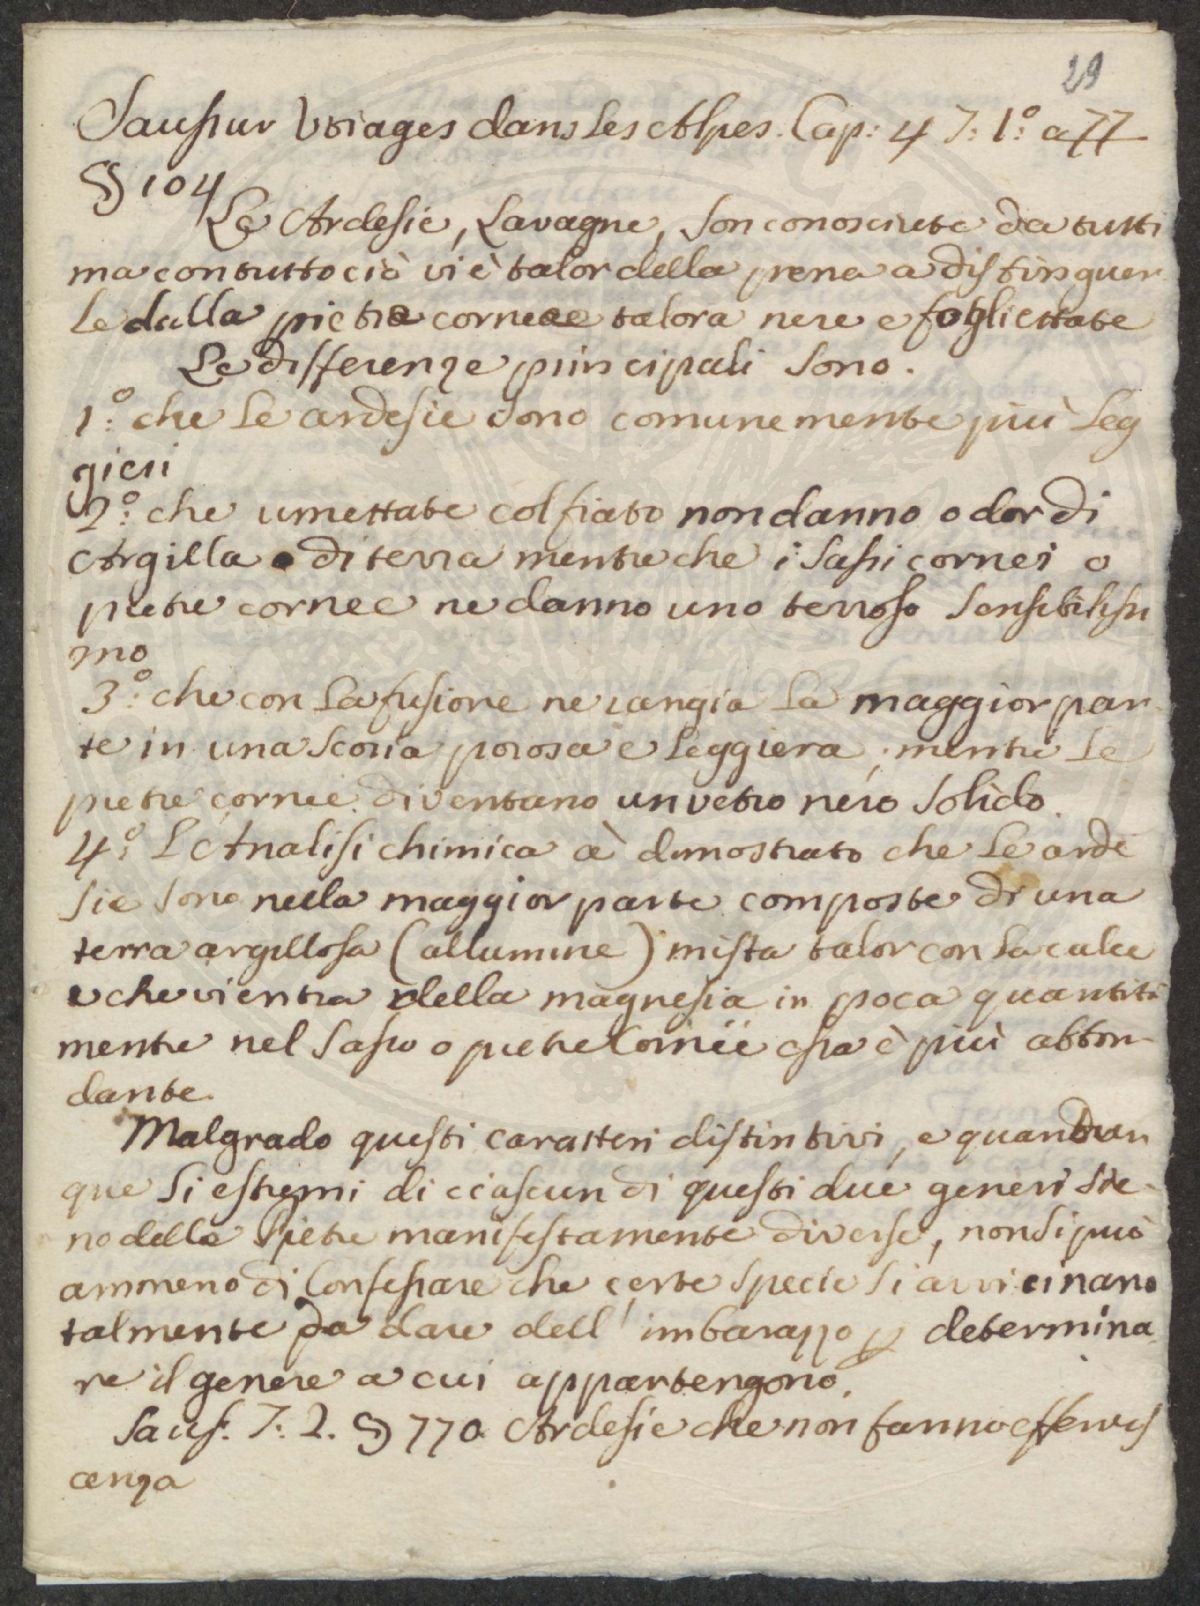 29
Saussur Voiages dans Les Alpes. Cap: 4 T: 1.° a 77
§ 104
Le Ardesie, Lavagne, son conosciute da tutti
ma contuttociò vi è talor della pena a distinguer
le dalla pietre cornee talora nere e fogliettate
Le differenze principali sono.
1.° che le ardesie sono comunemente più leg
gieri
2.° che umettate col fiato non danno odor di
Argilla o di terra mentre che i sassi cornei o
pietre cornee ne danno uno terroso sensibilissi
mo
3.° che con la fusione ne cangia la maggior par
te in una scoria porosa e leggiera, mentre le
pietre cornee diventano un vetro nero solido.
4.° L'Analisi chimica à dimostrato che le arde
sie sono nella maggior parte composte di una
terra argillosa (allumine) mista talor con la calce
e che vi entra della magnesia in poca quantità
mentre nel sasso o pietre Cornee essa è più abbon-
dante.
Malgrado questi caratteri distintivi, e quantun
que si estremi di ciascun di questi due generi sie-
no delle Pietre manifestamente diverse, non si può
ammeno di Confessare che certe specie si avvicinano
talmente da dare dell' imbarazzo p determina
re il genere a cui appartengono.
Sauss. T: 2. § 770 Ardesie che non fanno efferves
cenza